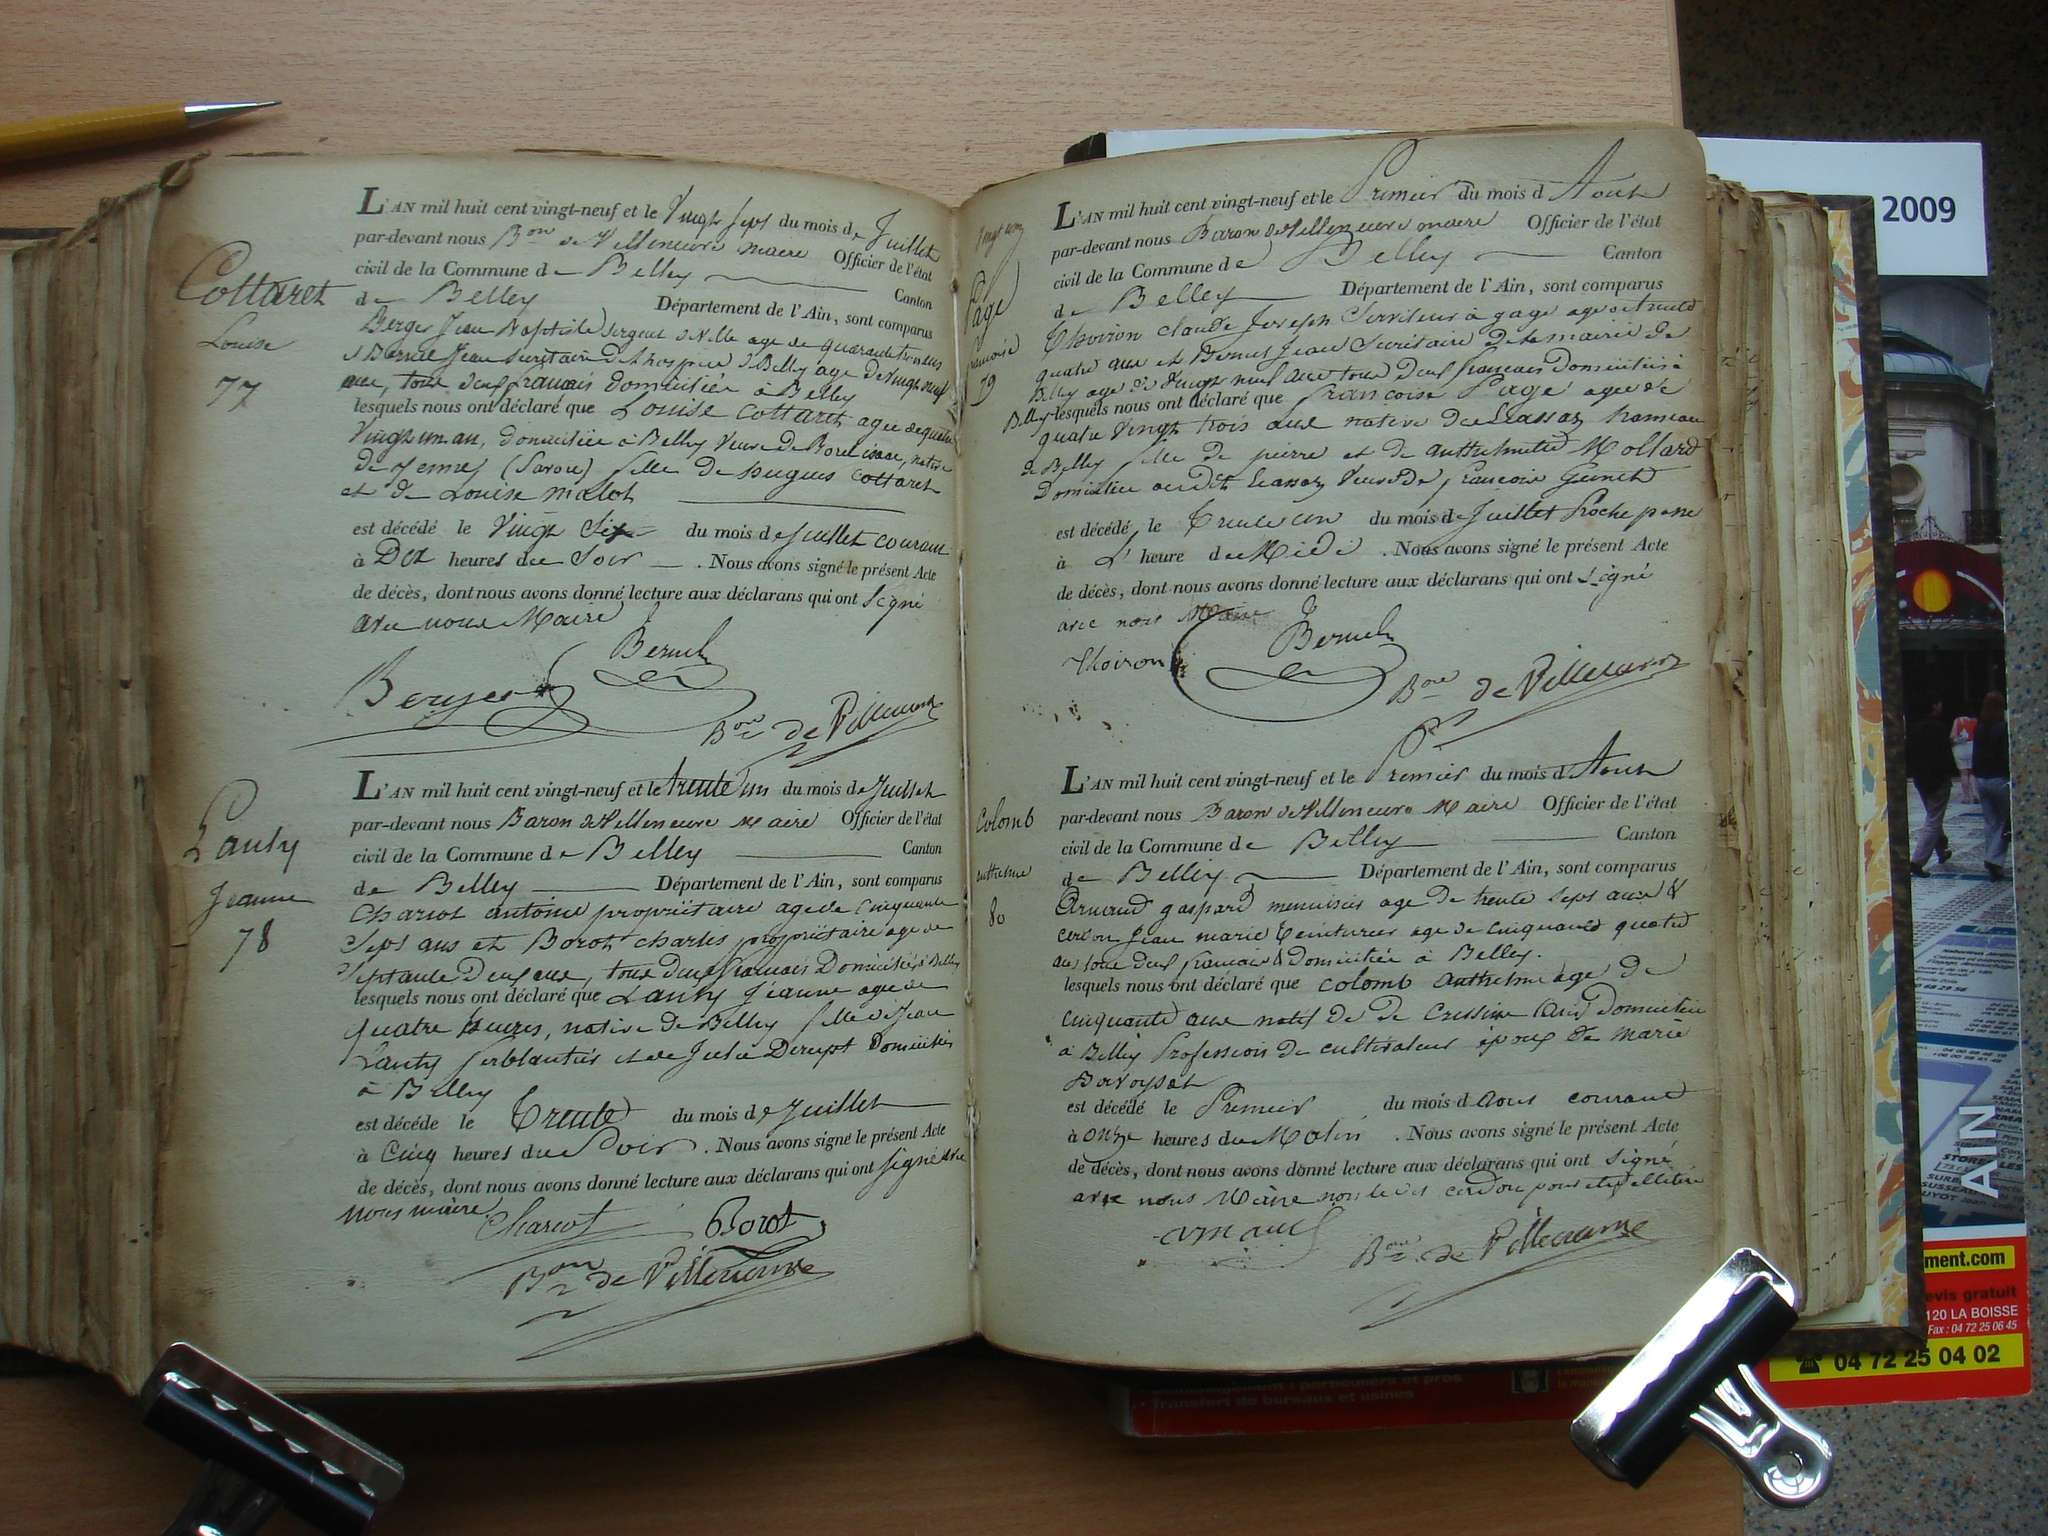 Cottaret
Louise
77
L'AN mil huit cent vingt-neuf et le Vingt Sept du mois de Juillet
par-devant nous Bon de Villeneuve maire Officier de l'état
civil de la Commune de Belley Canton
de Belley Département de l'Ain, sont comparus
Berger Jean Baptiste Sergent de Ville age de quarante trois ans
et Bernel Jean Secretaire de l'hospice de Belley age de vingt neuf
ans, tous deux français domiciliés à Belley
lesquels nous ont déclaré que Louise Cottaret agee de quatre
Vingt un an, domiciliée à Belley Veuve de Borel isaac, native
de yenne (Savoie) fille de hugues Cottaret
et de Louise malot
est décédé le Vingt Six du mois de juillet courant
à Dix heures du Soir . Nous avons signé le présent Acte
de décès, dont nous avons donné lecture aux déclarans qui ont Signé
avec nous Maire
Bernel
Berger
Bon de Villeneuve
Lanty
Jeanne
78
L'AN mil huit cent vingt-neuf et le trente un du mois de Juillet
par-devant nous Baron de Villeneuve Maire Officier de l'état
civil de la Commune de Belley Canton
de Belley Département de l'Ain, sont comparus
Charcot antoine propriétaire age de Cinquante
Sept ans et Borot charles propriétaire age de
Septante Deux ans, tous deux français Domiciliés à Belley
lesquels nous ont déclaré que Lanty Jeanne agee de
quatre heures, native de Belley fille de Jean
Lanty ferblantier et de Julie Domiciliés
à Belley
est décédé le Trente du mois de Juillet
à Cinq heures du Soir . Nous avons signé le présent Acte
de décès, dont nous avons donné lecture aux déclarans qui ont signé avec
nous maire
Charcot Borot
Bon de Villeneuve
Page
francoise
79
L'AN mil huit cent vingt-neuf et le Premier du mois d Aout
par-devant nous Baron de Villeneuve maire Officier de l'état
civil de la Commune de Belley Canton
de Belley Département de l'Ain, sont comparus
Thoiron claude Joseph Serviteur à gage age de trente
quatre ans et Bernel Jean Secritaire de la mairie de
Belley age de Vingt neuf ans tous deux français domiciliés à
Belley lesquels nous ont déclaré que francoise Page agee de
quatre Vingt trois ans native de hameau
de Belley fille de pierre et de anthelmette Mollard
Domiciliée Veuve de françois
est décédé le Trente un du mois de Juillet Proche passé
à L' heure de Midi . Nous avons signé le présent Acte
de décès, dont nous avons donné lecture aux déclarans qui ont signé
avec nous Maire
Thoiron Bernel
Bon de Villeneuve
Colomb
anthelme
80
L'AN mil huit cent vingt-neuf et le Premier du mois d Aout
par-devant nous Baron de Villeneuve Maire Officier de l'état
civil de la Commune de Belley Canton
de Belley Département de l'Ain, sont comparus
Arnaud gaspard menuisier age de trente Sept ans &
cerdon Jean marie teinturier age de cinquante quatre
ans tous deux français & domiciliés à Belley.
lesquels nous ont déclaré que colomb anthelme age de
cinquante ans natif de de Cressin (Ain) domicilié
à Belley Profession de cultivateur époux de marie
est décédé le Premier du mois d Aout courant
à onze heures du Matin . Nous avons signé le présent Acte
de décès, dont nous avons donné lecture aux déclarans qui ont signé
avec nous Maire non ledit cerdon pour etre illitéré
arnaud
Bon de Villeneuve
2009
AN
ment.com
evis gratuit
120 LA BOISSE
Fax : 04 72 25 06 45
04 72 25 04 02
particuliers et pros
Transfert de bureaux et usines